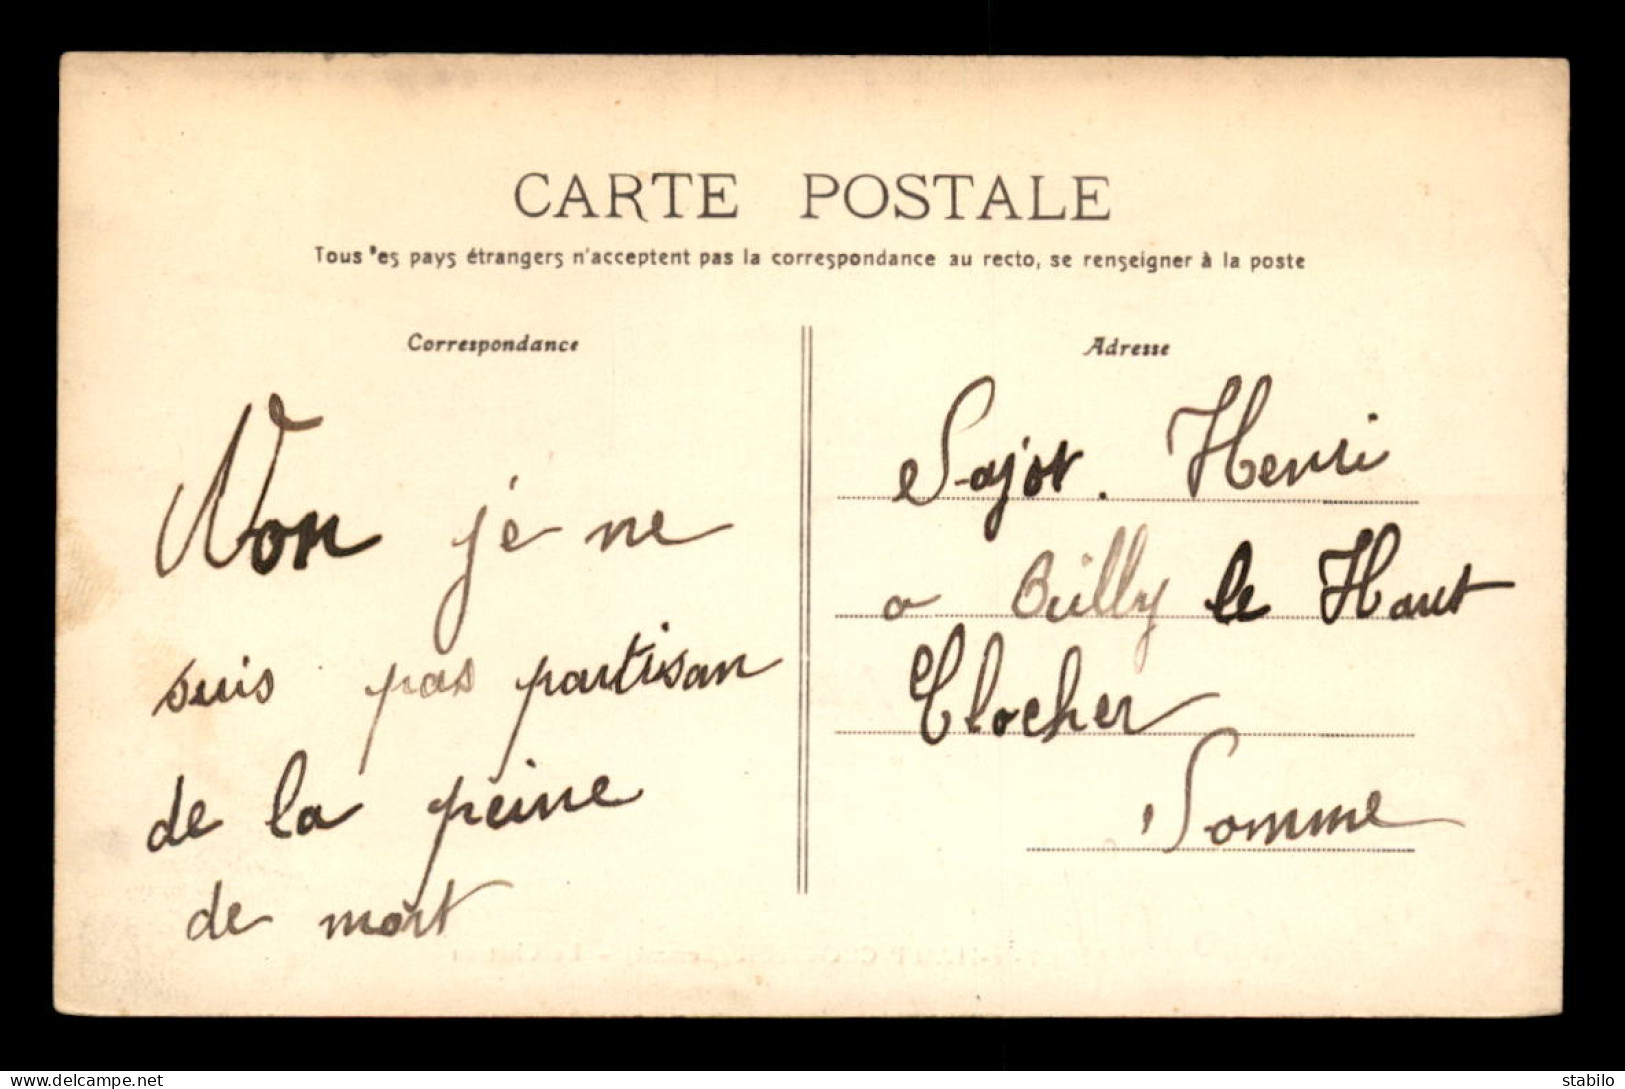 CARTE POSTALE
Tous les pays étrangers n'acceptent pas la correspondance au recto, se renseigner à la poste
Correspondance
Non je ne
suis pas partisan
de la peine
de mort
Adresse
Sajot. Henri
a Builly le Haut
Clocher
Somme
delcampe.net
stabilo